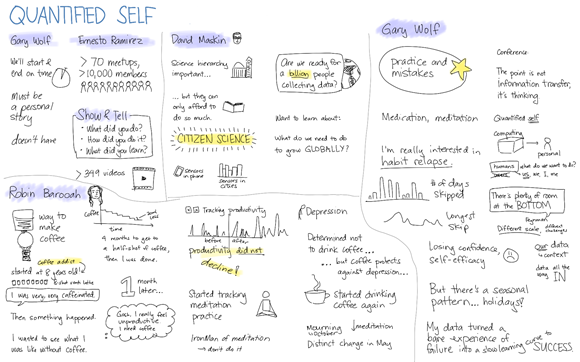 QUANTIFIED SELF
Gary Wolf
We'll start &
end on time
Must be
a personal
story
doesn't have
Ernesto Ramirez
> 70 meetups,
> 10,000 members
Show & Tell
• What did you do?
• How did you do it?
• What did you learn?
> 399 videos
David Maskin
Science hierarchy
important...
... but they can
only afford to
do so much.
CITIZEN SCIENCE
sensors
in phone
sensors in
cities
Are we ready for
a billion people
collecting data?
Want to learn about:
What do we need to do
to grow GLOBALLY?
Gary Wolf
practice and
mistakes
Medication, meditation
I'm really interested in
habit relapse:
# of days
skipped
Longest
skip
Conference
The point is not
information transfer,
it's thinking
Quantified self
computing
→ personal
humans
what do we want to do?
us, I, me
There's plenty of room
at the BOTTOM
Feynman
Different scale, different
challenges
Losing confidence,
self-efficacy
Our data
is context
data all the
way IN
But there's a seasonal
pattern... holidays?
My data turned a
bare experience of
failure into a slow learning curve to SUCCESS
Robin Barooah
way to
make
coffee
coffee addict
started at 8 years old!
I was very very caffeinated.
Then something happened.
I wanted to see what I
was like without coffee.
Coffee
time
4 months to get to
a half-shot of coffee,
then I was done.
1 month
later...
Gosh, I really feel
unproductive
I need coffee
Tracking productivity
before
after
productivity did not
decline!
Started tracking
meditation
practice
Ironman of meditation
→ don't do it
Depression
Determined not
to drink coffee...
... but coffee protects
against depression...
Started drinking
coffee again
Mourning
in October
meditation
Distinct change in May